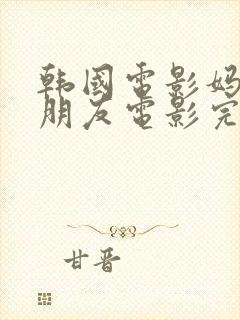 韩国电影妈
朋友电影完
甘晋